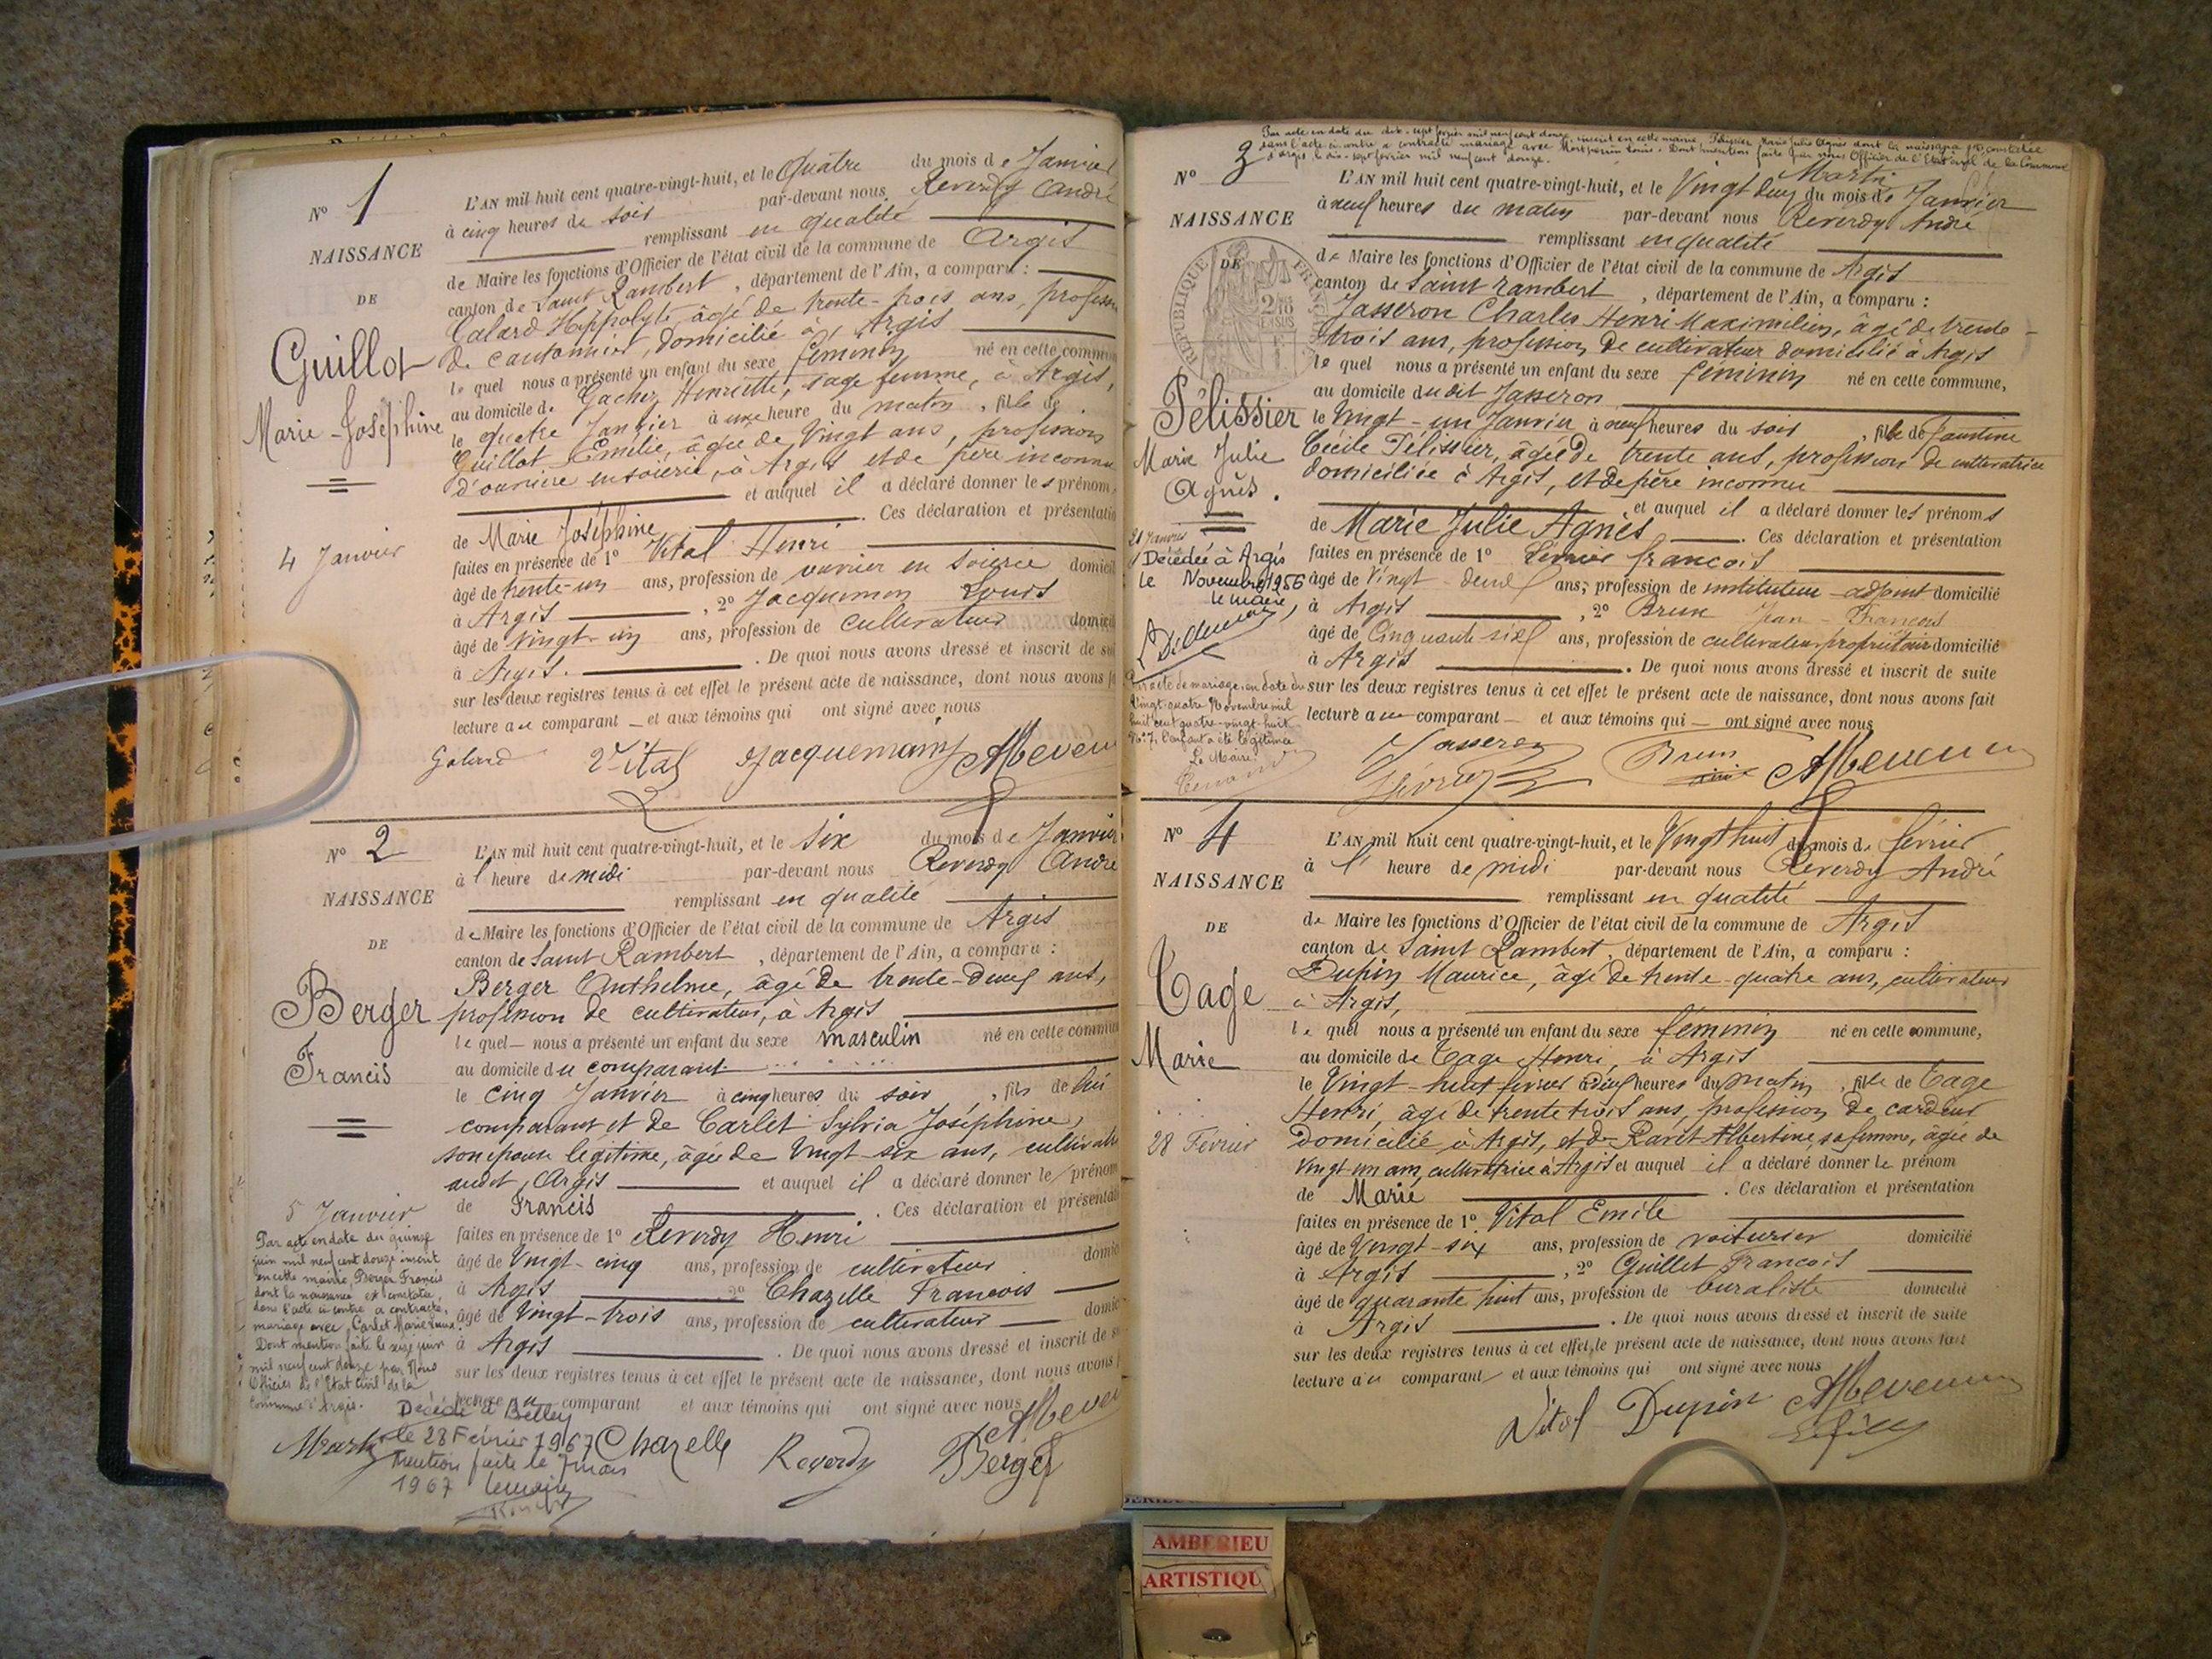 N° 1
NAISSANCE
DE
Guillot
Marie-Joséphine
4 Janvier
L'AN mil huit cent quatre-vingt-huit, et le Quatre du mois de Janvier
à cinq heures du soir par-devant nous Reverdy André
remplissant en qualité
de Maire les fonctions d'Officier de l'état civil de la commune de Argis
canton de Saint Rambert, département de l'Ain, a comparu :
Galard Hippolyte âgé de trente-trois ans, profession
de cantonnier, domicilié à Argis
lequel nous a présenté un enfant du sexe féminin né en cette commune
au domicile de Gachez Henriette, sage femme, à Argis,
le quatre Janvier à une heure du matin, fille de
Guillot Emélie, âgée de Vingt ans, profession
d'ouvrière en soierie, à Argis et de père inconnu
et auquel il a déclaré donner les prénom
de Marie Joséphine. Ces déclaration et présentation
faites en présence de 1° Vital Henri
âgé de trente-un ans, profession de ouvrier en soierie domicil
à Argis, 2° Jacquemin Louis
âgé de vingt-un ans, profession de cultivateur domicil
à Argis. De quoi nous avons dressé et inscrit de sui
sur les deux registres tenus à cet effet le présent acte de naissance, dont nous avons f
lecture au comparant et aux témoins qui ont signé avec nous
Galard Vital Jacquemin
N° 2
NAISSANCE
DE
Berger
Francis
5 Janvier
Par acte en date du quinze
juin mil neuf cent douze inscrit
en cette mairie, Berger Francis
dont la naissance est constatée
dans l'acte ci contre a contracté
mariage avec Carlet Marie
Dont mention faite le seize juin
mil neuf cent douze par Nous
Officier de l'Etat Civil de la
Commune d'Argis.
L'AN mil huit cent quatre-vingt-huit, et le six du mois de Janvier
à l'heure de midi par-devant nous Reverdy André
remplissant en qualité
de Maire les fonctions d'Officier de l'état civil de la commune de Argis
canton de Saint Rambert, département de l'Ain, a comparu :
Berger Anthelme, âgé de trente-deux ans,
profession de cultivateur, à Argis
lequel nous a présenté un enfant du sexe masculin né en cette commun
au domicile du comparant
le cinq Janvier à cinq heures du soir, fils de lui
comparant et de Carlet Sylvia Joséphine,
son épouse légitime, âgée de Vingt-six ans, cultivatr
audit Argis et auquel il a déclaré donner le prénom
de Francis. Ces déclaration et présentati
faites en présence de 1° Reverdy Henri
âgé de Vingt-cinq ans, profession de cultivateur domic
à Argis 2° Chazelle Francois
âgé de Vingt-trois ans, profession de cultivateur domic
à Argis. De quoi nous avons dressé et inscrit de s
sur les deux registres tenus à cet effet le présent acte de naissance, dont nous avons
lecture au comparant et aux témoins qui ont signé avec nous
Décédé à Belley
le 23 Février 1967
mention faite le 7 mars
1967 Le maire
Chazelle Reverdy Berger
Par acte en date du dix-sept février mil neuf cent douze, inscrit en cette mairie, Pélissier Marie Julie Agnès dont la naissance est constatée
dans l'acte ci contre a contracté mariage avec Louis. Dont mention faite par nous Officier de l'Etat civil de la Commune
d'Argis, le dix-sept février mil neuf cent douze.
Martin
N° 3
NAISSANCE
DE
RÉPUBLIQUE FRANÇAISE
Pélissier
Marie Julie
Agnès.
21 Janvier
Décédée à Argis
le Novembre 1956
Le maire,
Par acte de mariage, en date du
Vingt-quatre Novembre mil
huit cent quatre-vingt-huit
N° 7, l'enfant a été légitimée
Le Maire
L'AN mil huit cent quatre-vingt-huit, et le Vingt deux du mois de Janvier
à neuf heures du matin par-devant nous Reverdy André
remplissant en qualité
de Maire les fonctions d'Officier de l'état civil de la commune de Argis
canton de Saint Rambert, département de l'Ain, a comparu :
Jasseron Charles Henri Maximilien, âgé de trente-
trois ans, profession de cultivateur domicilié à Argis
lequel nous a présenté un enfant du sexe féminin né en cette commune,
au domicile dudit Jasseron
le Vingt-un Janvier à neuf heures du soir, fille de Faustine
Cécile Pélissier, âgée de trente ans, profession de cultivatrice
domiciliée à Argis, et de père inconnu
et auquel il a déclaré donner les prénoms
de Marie Julie Agnès. Ces déclaration et présentation
faites en présence de 1° francois
âgé de Vingt-deux ans, profession de instituteur-adjoint domicilié
à Argis, 2° Brun Jean-Francois
âgé de Cinquante-six ans, profession de cultivateur propriétaire domicilié
à Argis. De quoi nous avons dressé et inscrit de suite
sur les deux registres tenus à cet effet le présent acte de naissance, dont nous avons fait
lecture au comparant et aux témoins qui ont signé avec nous
Jasseron Brun
N° 4
NAISSANCE
DE
Cage
Marie
28 Février
L'AN mil huit cent quatre-vingt-huit, et le Vingt huit du mois de février
à l'heure de midi par-devant nous Reverdy André
remplissant en qualité
de Maire les fonctions d'Officier de l'état civil de la commune de Argis
canton de Saint Rambert, département de l'Ain, a comparu :
Dupin Maurice, âgé de trente-quatre ans, cultivateur
à Argis,
lequel nous a présenté un enfant du sexe féminin né en cette commune,
au domicile de Cage Henri, à Argis
le Vingt-huit février à deux heures du matin, fille de Cage
Henri, âgé de trente trois ans, profession de cardeur
domicilié à Argis, et de Ravet Albertine sa femme, âgée de
vingt-un ans, cultivatrice à Argis et auquel il a déclaré donner le prénom
de Marie. Ces déclaration et présentation
faites en présence de 1° Vital Emile
âgé de Vingt-six ans, profession de voiturier domicilié
à Argis, 2° Guillet Francois
âgé de quarante huit ans, profession de buraliste domicilié
à Argis. De quoi nous avons dressé et inscrit de suite
sur les deux registres tenus à cet effet, le présent acte de naissance, dont nous avons fait
lecture au comparant et aux témoins qui ont signé avec nous
Vital Dupin
AMBERIEU
ARTISTIQU